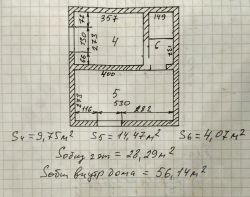 357 149
72
130
273
66
4
6
400
5
273
116 530 282
S4 = 9,75 м² S5 = 14,47 м² S6 = 4,07 м²
Sобщ 2 эт = 28,29 м²
Sобщ внутр дома = 56,14 м²